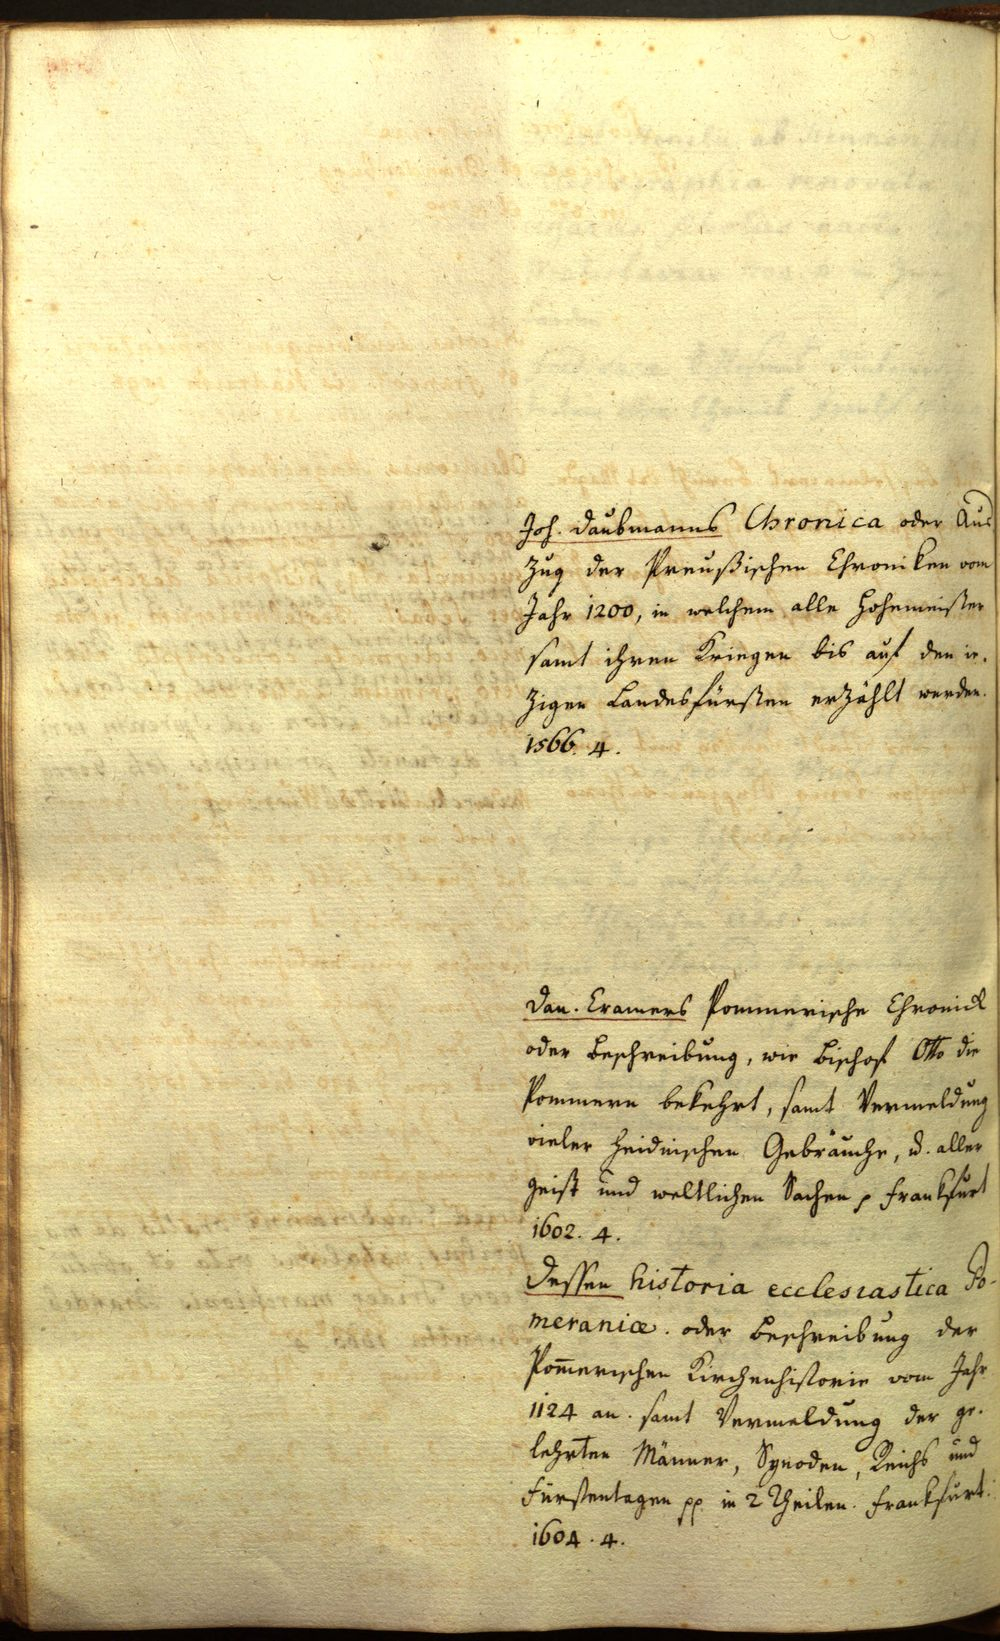 Joh. Daubmanns Chronica oder Aus
zug der Preußischen Chroniken vom
Jahr 1200, in welchem alle Hohemeister
samt ihren Kriegen bis auf den ie-
zigen Landesfürsten erzählt werden.
1566. 4.
Dan. Cramers Pommerische Chronick
oder Beschreibung, wie Bischof Otto die
Pommern bekehrt, samt Vermeldung
vieler heidnischen Gebräuche, u. aller
geist und weltlichen Sachen p Frankfurt
1602. 4.
Dessen historia ecclesiastica Po-
meraniæ. oder Beschreibung der
Pom̄erischen Kirchenhistorie vom Jahr
1124 an. samt Vermeldung der ge-
lehrten Männer, Synoden, Reichs und
Fürstentagen pp in 2 Theilen. Frankfurt.
1604. 4.